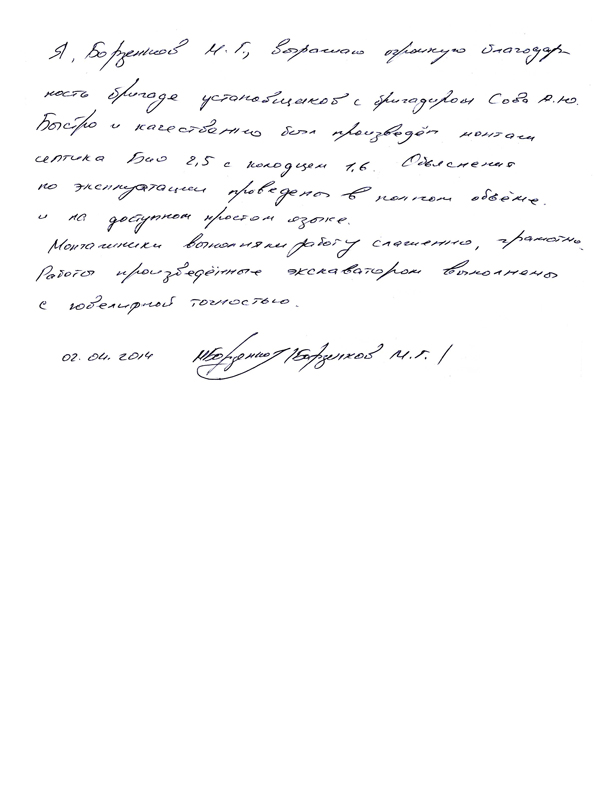 Я, Борзенков М.Г., выражаю огромную благодар-
ность бригаде установщиков с бригадиром Сова А.Ю.
Быстро и качественно был произведён монтаж
септика Био 2,5 с колодцем 1,6. Объяснения
по эксплуатации проведены в полном объёме.
и на доступном простом языке.
Монтажники выполняли работу слаженно, грамотно.
Работы произведённые экскаватором выполнены
с ювелирной точностью.
02.04.2014 МБорзенков /Борзенков М.Г./